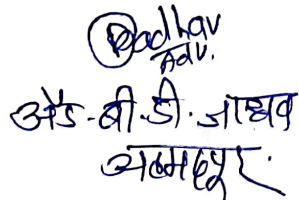 Badhav
Adv.
अॅड. बी. डी. जाधव
अहमदपूर.